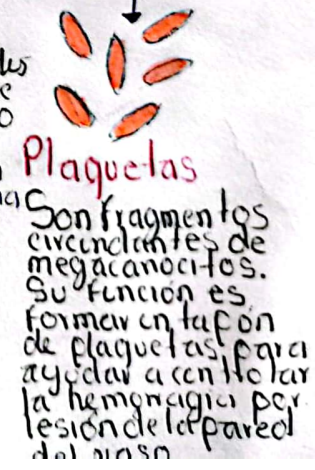 des
e
o
Plaquetas
na
Son fragmentos
circundantes de
megacanocitos.
Su función es
formar un tapón
de plaquetas, para
ayudar a controlar
la hemorragia por
lesión de la pared
del vaso